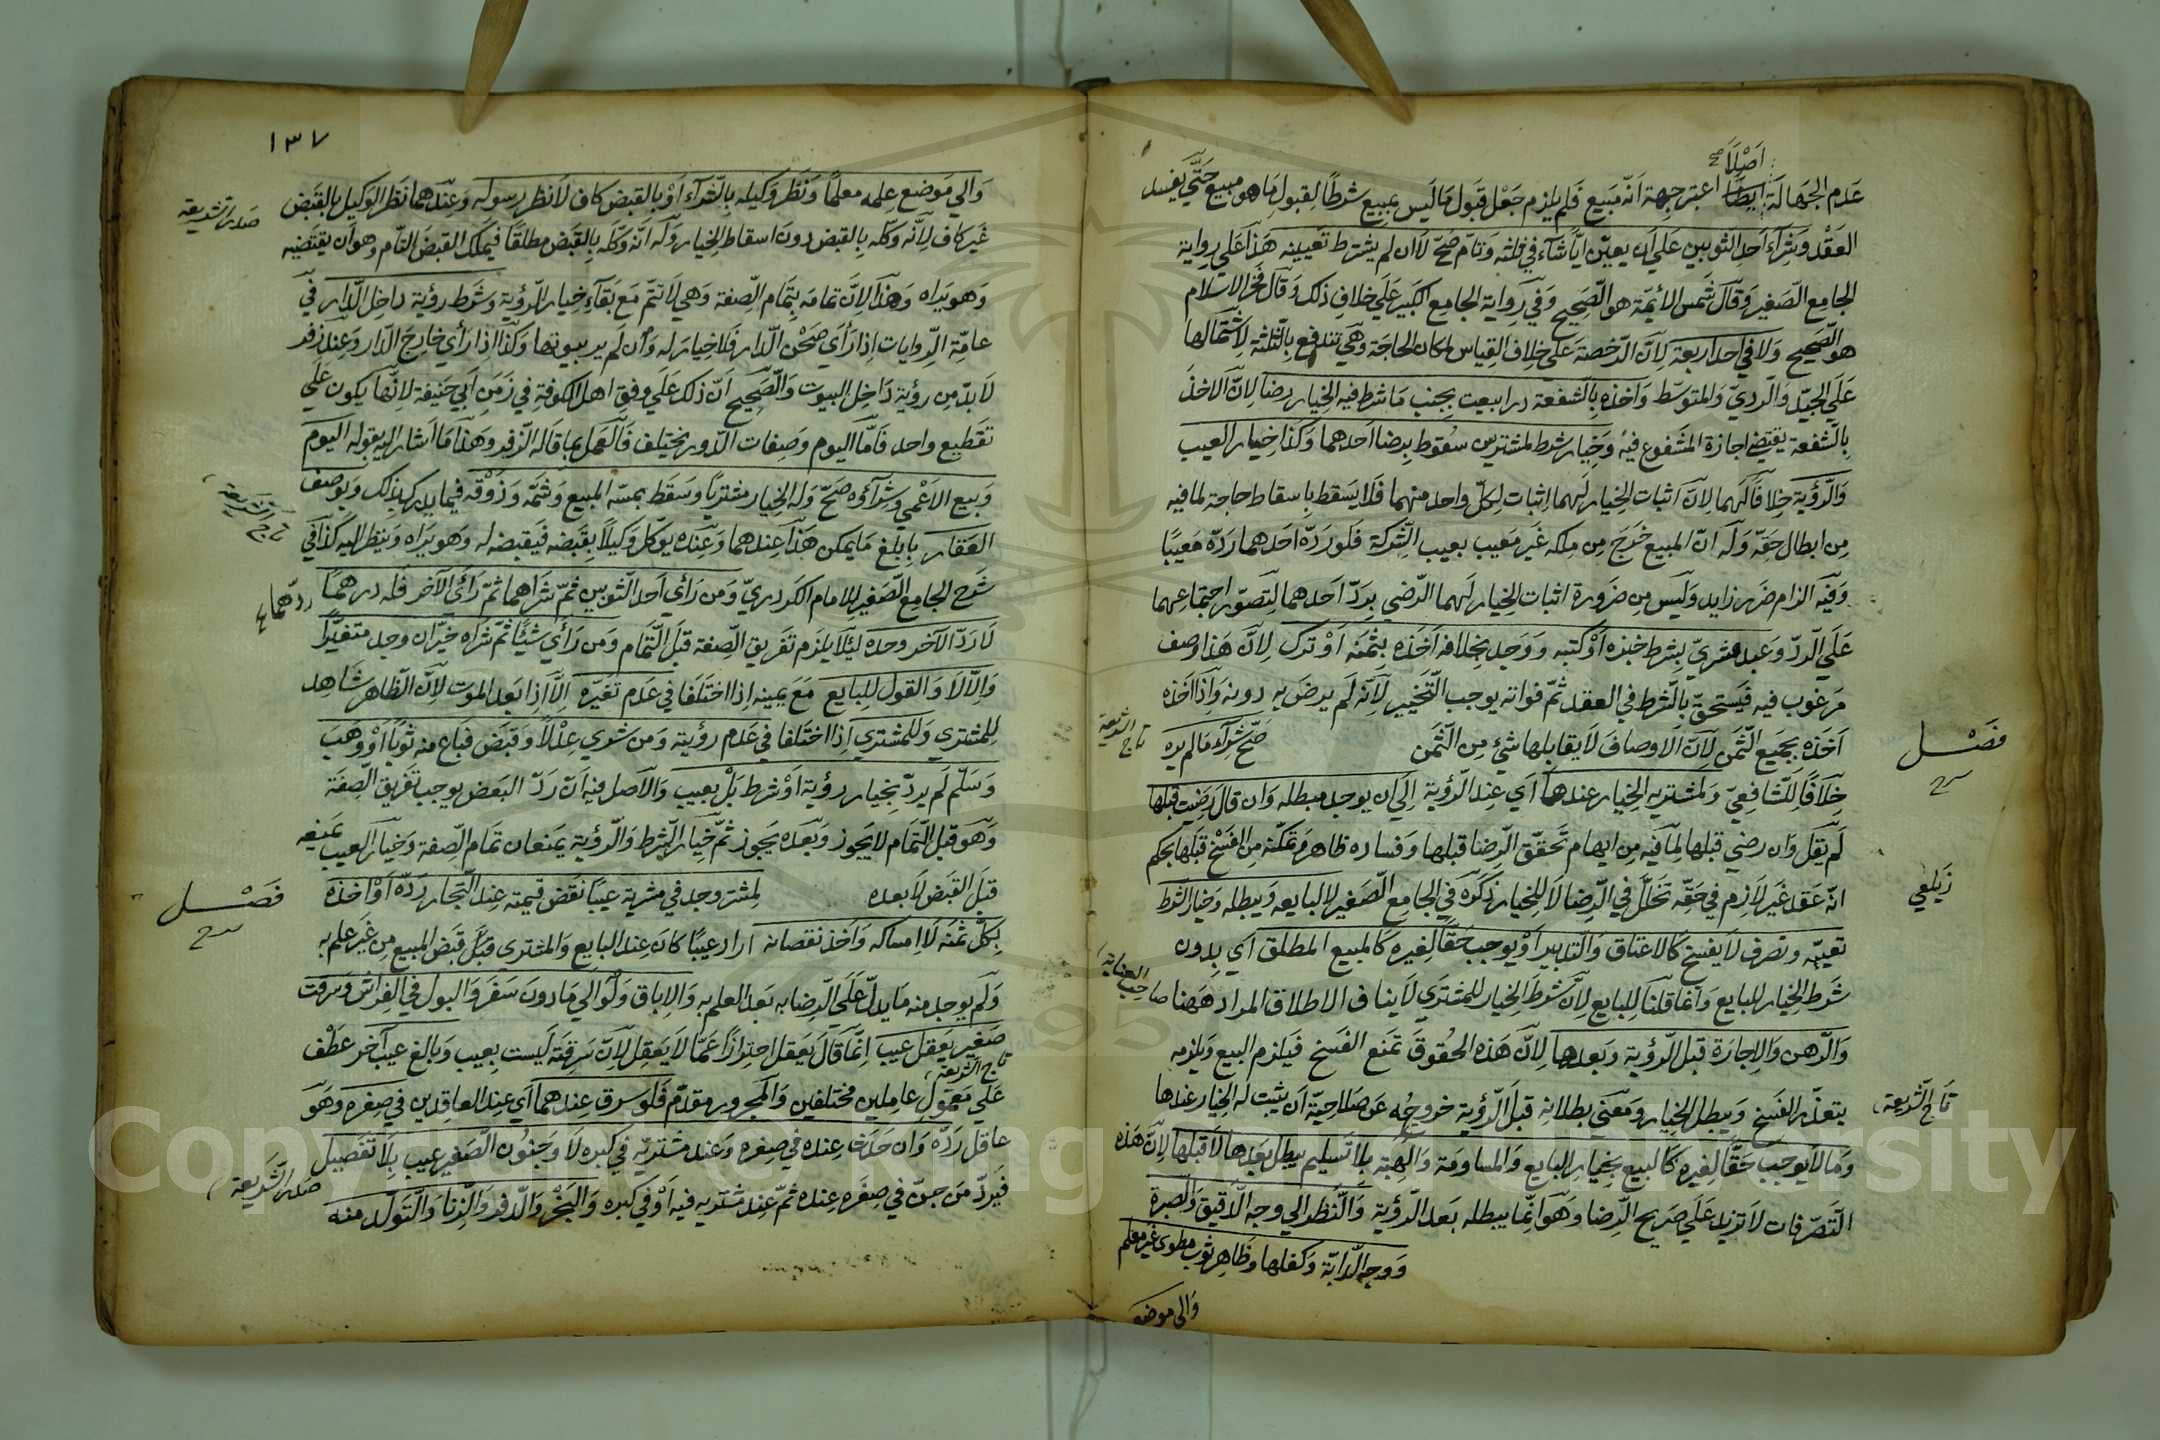 اصلا صح
عدم الجهالة ايضا اعتبر جهة انه مبيع فلم يلزم جعل قبول ما ليس بمبيع شرطا لقبول ما هو مبيع حتى يفسد
العقد وشراء احد الثوبين على ان يعين ايا شاء في ثلثه وتام صح لا ان لم يشترط تعيينه هذا على رواية
الجامع الصغير وقال شمس الائمة هو الصحيح وفي رواية الجامع الكبير على خلاف ذلك وقال فخر الاسلام
هو الصحيح ولا في احد اربعة لان الرخصة على خلاف القياس لمكان الحاجة وهي تندفع بالثلثة لاشتمالها
على الجيد والردي والمتوسط واخذه بالشفعة دارا بيعت بجنب ما شرط فيه الخيار رضا لان الاخذ
بالشفعة يقتضي اجازة المشفوع فيه وخيار شرط لمشتريين سقوط برضا احدهما وكذا خيار العيب
والرؤية خلافا لهما لان اثبات الخيار لهما اثبات لكل واحد منهما فلا يسقط باسقاط حاجة لما فيه
من ابطال حقه وله ان المبيع خرج من ملكه غير معيب بعيب الشركة فلو رده احدهما رده معيبا
وفيه الزام ضرر زايد وليس من ضرورة اثبات الخيار لهما الرضى برد احدهما لتصور اجتماعهما
على الرد وعبد مشري بشرط خبزه او كتبه ووجد بخلافه اخذه بثمنه او ترك لان هذا وصف
مرغوب فيه فيستحق بالشرط في العقد ثم فواته يوجب التخيير لانه لم يرض به دونه واذا اخذه
تاج الشريعة
اخذه بجميع الثمن لان الاوصاف لا يقابلها شئ من الثمن صح شراء ما لم يره
فصل
صح
خلافا للشافعي ولمشتريه الخيار عندها اي عند الرؤية الى ان يوجد مبطله وان قال رضيت قبلها
لم يقل وان رضي قبلها لما فيه من ايهام تحقق الرضا قبلها وفساده ظاهر وتمكنه من الفسخ قبلها بحكم
زيلعي
انه عقد غير لازم في حقه تخلل في الرضا لا للخيار ذكره في الجامع الصغير لا لبايعه ويبطله وخيار الشرط
تعيبه وتصرف لا يفسخ كالاعتاق والتدبير او يوجب حقا لغيره كالمبيع المطلق اي بدون
شرط الخيار للبايع وانما قلنا للبايع لان شرط الخيار للمشتري لا ينافى الاطلاق المراد ههنا
صاحب العناية
والرهن والاجارة قبل الرؤية وبعدها لان هذه الحقوق تمنع الفسخ فيلزم البيع ويلزمه
بتعذر الفسخ ويبطل الخيار ومعنى بطلانه قبل الرؤية خروجه عن صلاحية ان يثبت له الخيار عندها
تاج الشريعة
وما لا يوجب حقا لغيره كالبيع بخيار البايع والمساومة والهبة بلا تسليم يبطل بعدها لا قبلها لان هذه
التصرفات لا تزيد على صريح الرضا وهو انما يبطله بعد الرؤية والنظر الى وجه الدقيق والصبرة
ووجه الدابة وكفلها وظاهر ثوب مطوى غير معلم
والى موضع
١٣٧
والي موضع علمه معلما ونظر وكيله بالشراء او بالقبض كاف لا نظر رسوله وعندهما نظر الوكيل بالقبض
صدر الشريعة
غير كاف لانه وكله بالقبض دون اسقاط الخيار وله انه وكله بالقبض مطلقا فيملك القبض التام وهو ان يقبضه
وهو يراه وهذا لان تمامه بتمام الصفقة وهي لا تتم مع بقاء خيار الرؤية وشرط رؤية داخل الدار في
عامة الروايات اذا رأي صحن الدار فلا خيار له وان لم ير بيوتها وكذا اذا رأي خارج الدار وعند زفر
لا بد من رؤية داخل البيوت والصحيح ان ذلك على وفق اهل الكوفة في زمن ابي حنيفة لانها يكون على
تقطيع واحد فاما اليوم وصفات الدور تختلف فالعمل بما قاله الزفر وهذا ما اشار اليه بقوله اليوم
وبيع الاعمي وشراؤه صح وله الخيار مشتريا وسقط بمسه المبيع وشمه وذوقه فيما يدرك بذلك وبوصف
تاج الشريعة
العقار بابلغ ما يمكن هذا عندهما وعنده يوكل وكيلا بقبضه فيقبضه له وهو يراه وينظر اليه كذا في
شرح الجامع الصغير للامام الكردري ومن رأي احد الثوبين ثم شراهما ثم رأى الآخر فله درهما
ردهما
لا رد الآخر وحده لئلا يلزم تفريق الصفقة قبل التمام ومن رأي شيئا ثم شراه خير ان وجد متغيرا
والا لا والقول للبايع مع يمينه اذا اختلفا في عدم تغيره الا اذا بعد الموت لان الظاهر شاهد
للمشتري وللمشتري اذا اختلفا في عدم رؤيته ومن شري عدلا وقبض فباع منه ثوبا او وهب
وسلم لم يرد بخيار رؤية او شرط بل بعيب والاصل فيه ان رد البعض يوجب تفريق الصفقة
وهو قبل التمام لا يجوز وبعده يجوز ثم خيار الشرط والرؤية يمنعان تمام الصفقة وخيار العيب يمنعه
قبل القبض لا بعده لمشتر وجد في مشريه عيبا نقض قيمته عند التجار رده او اخذه
فصل
صح
بكل ثمنه لا امساكه واخذ نقصانه اراد عيبا كان عند البايع والمشتري قبل قبض المبيع من غير علم به
ولم يوجد منه ما يدل على الرضا به بعد العلم به والاباق ولو الي ما دون سفر والبول في الفراش وسرقت
صغير يعقل عيب انما قال يعقل احترازا عما لا يعقل لان سرقته ليست بعيب وبالغ عيب آخر عطف
تاج الشريعة
على معمول عاملين مختلفين والمجرور مقدم فلو سرق عندهما اي عند العاقدين في صغره وهو
عاقل رده وان حدث عنده في صغره وعند مشتريه في كبره لا وجنون الصغير عيب بلا تفصيل
صدر الشريعة
فيرد من جن في صغره عنده ثم عند مشتريه فيه او في كبره والبخر والدفر والزنا والتولد منه
Copyright © King Saud University